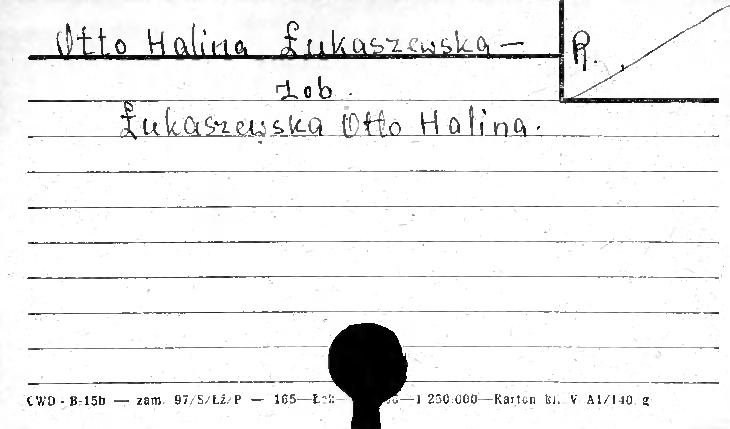 Otto Halina Łukaszewska — R.
zob.
Łukaszewska Otto Halina.
CWD - B-15b — zam. 97/S/Łź/P — 165— —1 250.000—Karton kl. V A1/140 g